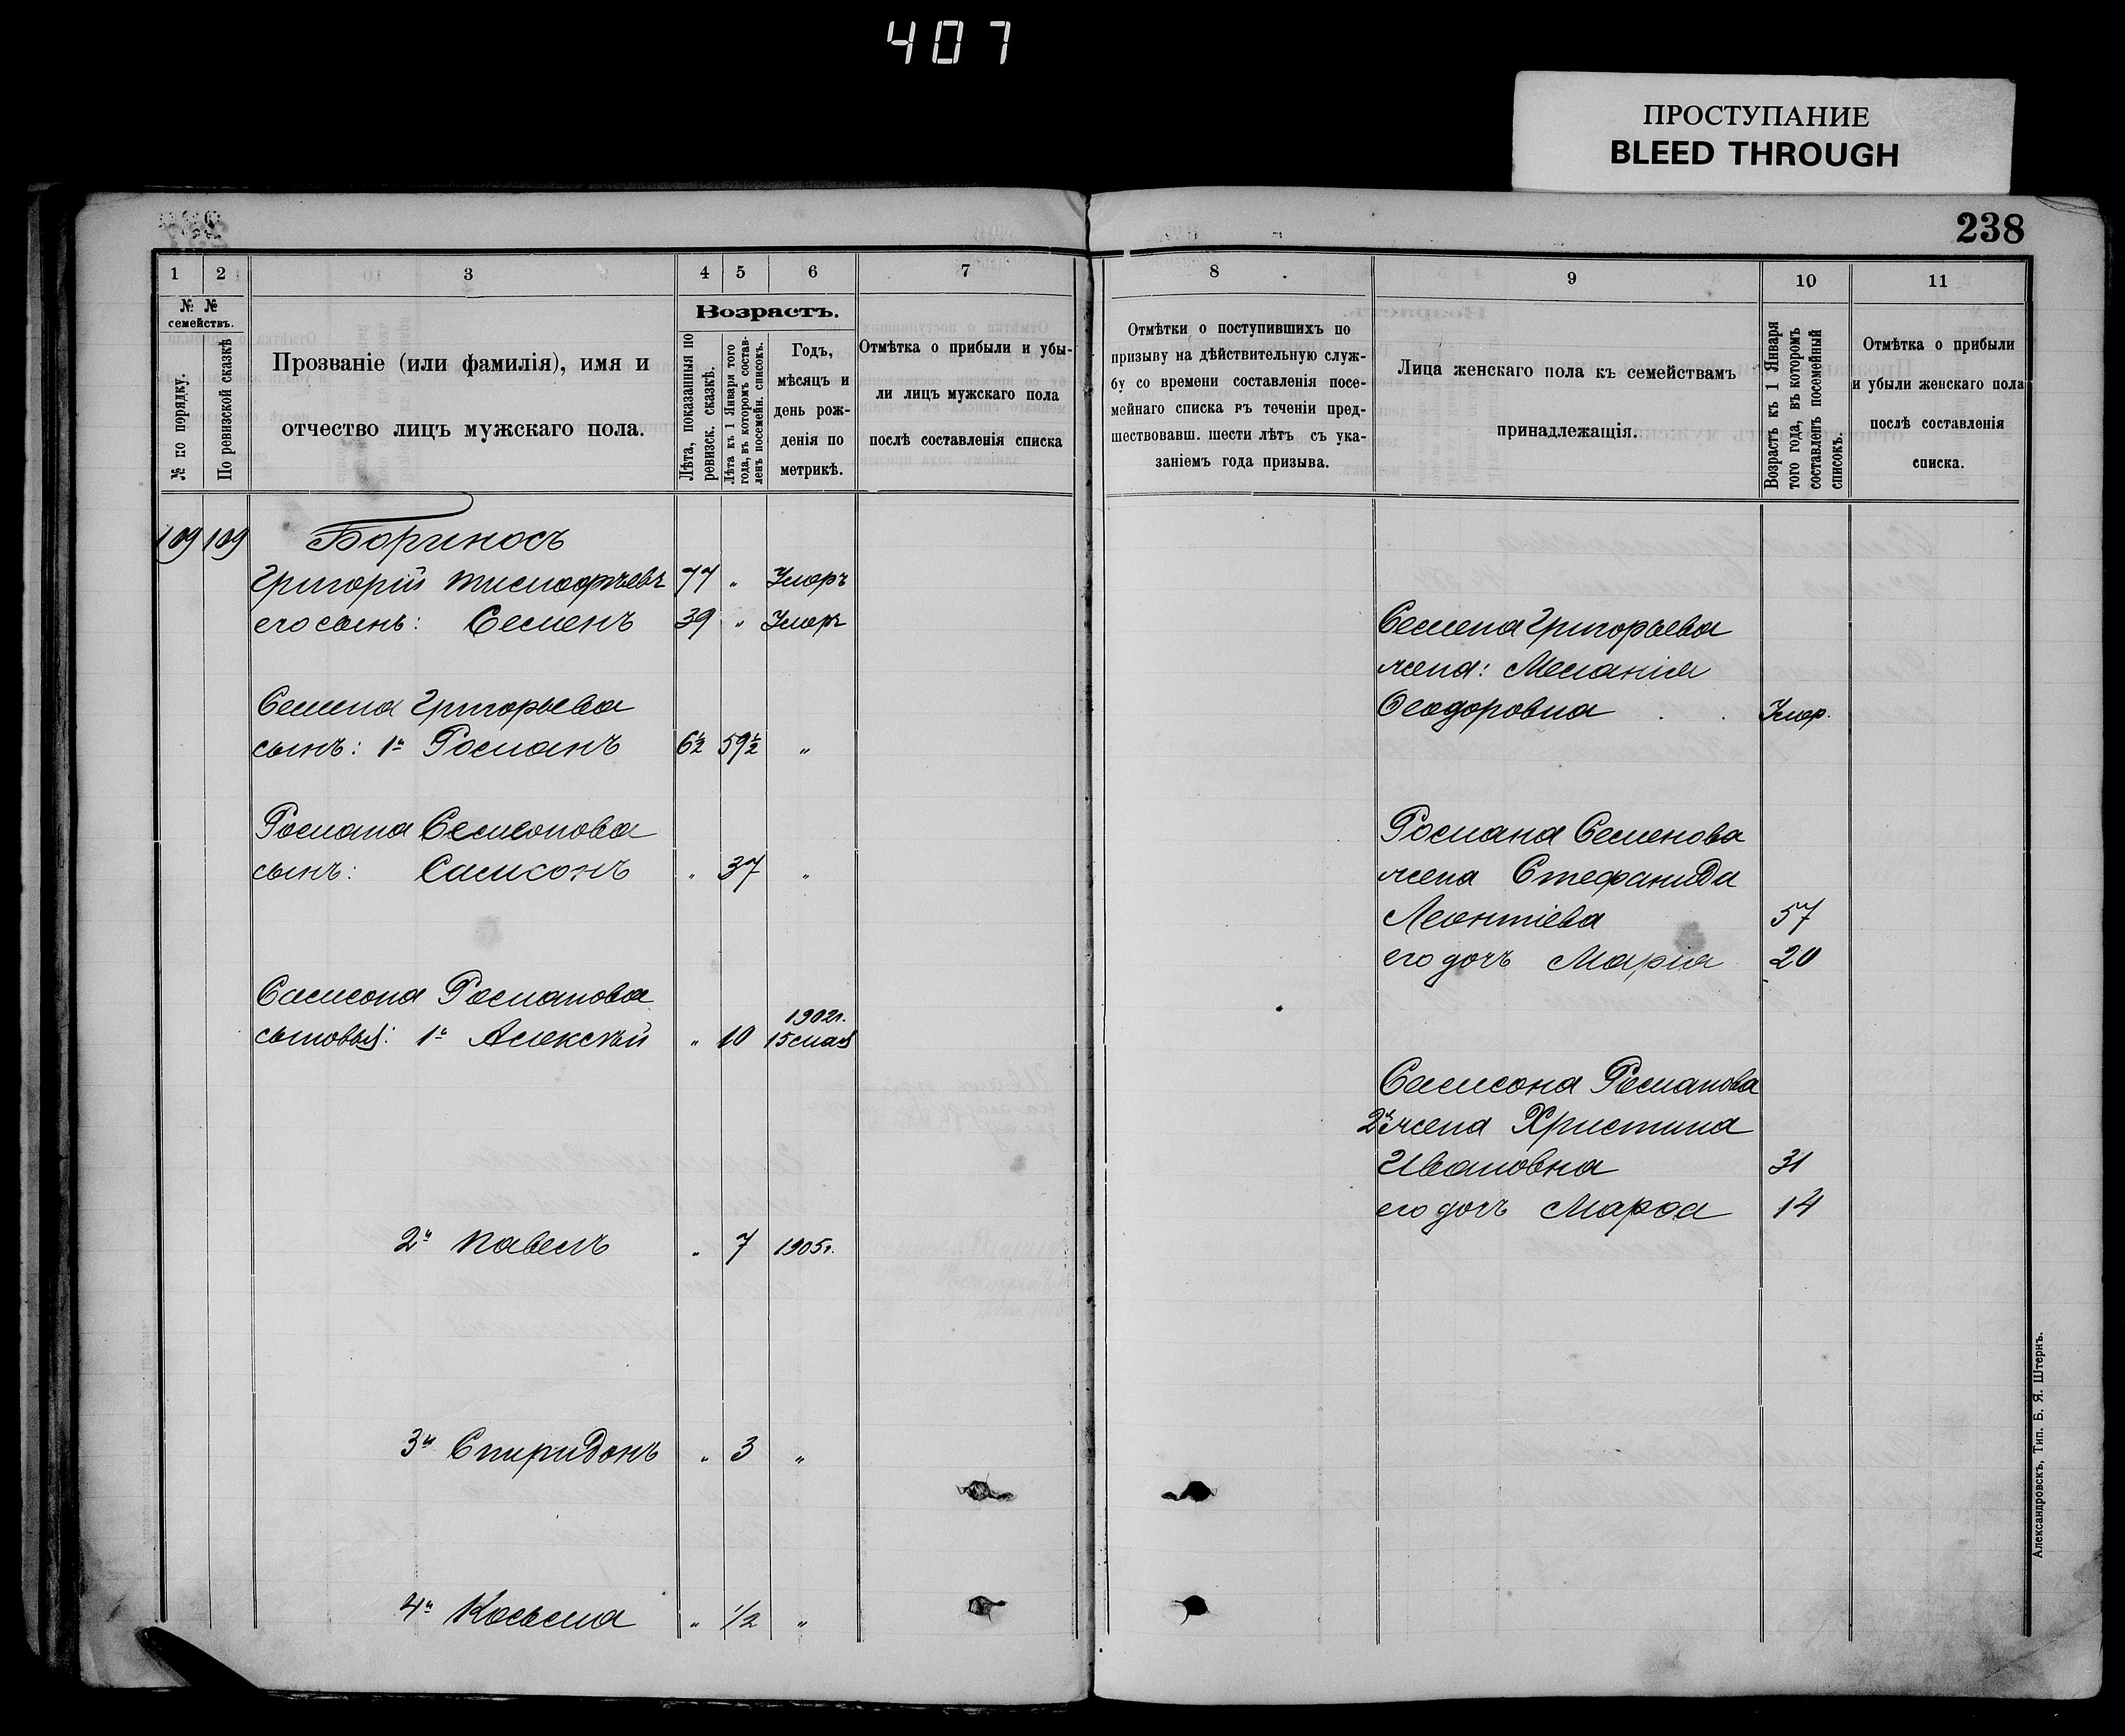 407
ПРОСТУПАНИЕ
BLEED THROUGH
238
1 2 3 4 5 6 7
№ № семействъ.
№ по порядку.
По ревизской сказкѣ
Прозваніе (или фамилія), имя и
отчество лицъ мужскаго пола.
Возрастъ.
Лѣта, показанныя по
ревизск. сказкѣ.
Лѣта къ 1 Января того
года, въ которомъ состав-
ленъ посемейн. списокъ.
Годъ,
мѣсяцъ и
день рож-
денія по
метрикѣ.
Отмѣтка о прибыли и убы-
ли лицъ мужскаго пола
послѣ составленія списка
109 109
Григорій 77 „ Умеръ
его сынъ: Семенъ 39 „ Умеръ
Семена Григорьева
сынъ: 1й Романъ 6½ 59½ „
Романа Семенова
сынъ: Самсонъ „ 37 „
Самсона Романова
сыновья: 1й Алексѣй „ 10 1902г.
15 мая
2й Павелъ „ 7 1905г.
3й Спиридонъ „ 3 „
4й Косьма „ 1/2 „
8 9 10 11
Отмѣтки о поступившихъ по
призыву на дѣйствительную служ-
бу со времени составленія посе-
мейнаго списка въ теченіи пред-
шествовавш. шести лѣтъ съ ука-
заніемъ года призыва.
Лица женскаго пола къ семействамъ
принадлежащія.
Возрастъ къ 1 Января
того года, въ которомъ
составленъ посемейный
списокъ.
Отмѣтка о прибыли
и убыли женскаго пола
послѣ составленія
списка.
Семена Григорьева
жена: Меланія
Ѳеодоровна . . Умер.
Романа Семенова
жена Стефанида
Леонтіева 57
его дочь Марія 20
Самсона Романова
2я жена Христина
Ивановна 31
его дочь Марѳа 14
Александровскъ, Тип. Б. Я. Штернъ.